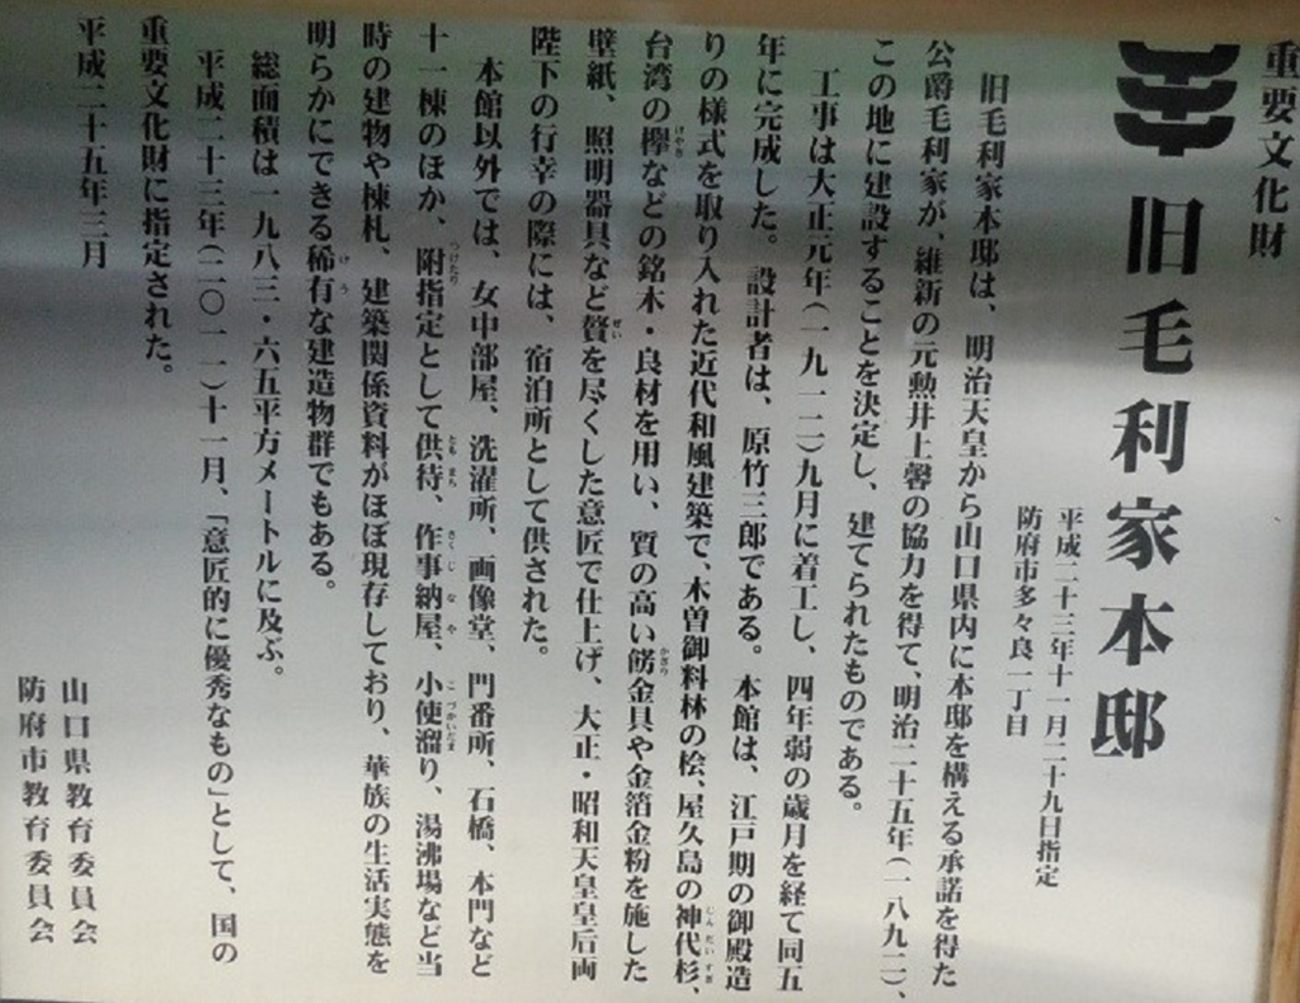 重要文化財
旧毛利家本邸
平成二十三年十一月二十九日指定
防府市多々良一丁目
旧毛利家本邸は、明治天皇から山口県内に本邸を構える承諾を得た
公爵毛利家が、維新の元勲井上馨の協力を得て、明治二十五年(一八九二)、
この地に建設することを決定し、建てられたものである。
工事は大正元年(一九一二)九月に着工し、四年弱の歳月を経て同五
年に完成した。設計者は、原竹三郎である。本館は、江戸期の御殿造
りの様式を取り入れた近代和風建築で、木曽御料林の桧、屋久島の神代杉、
台湾の欅などの銘木・良材を用い、質の高い餝金具や金箔金粉を施した
壁紙、照明器具など贅を尽くした意匠で仕上げ、大正・昭和天皇皇后両
陛下の行幸の際には、宿泊所として供された。
本館以外では、女中部屋、洗濯所、画像堂、門番所、石橋、本門など
十一棟のほか、附指定として供待、作事納屋、小使溜り、湯沸場など当
時の建物や棟札、建築関係資料がほぼ現存しており、華族の生活実態を
明らかにできる稀有な建造物群でもある。
総面積は一九八三・六五平方メートルに及ぶ。
平成二十三年(二〇一一)十一月、「意匠的に優秀なもの」として、国の
重要文化財に指定された。
平成二十五年三月
山口県教育委員会
防府市教育委員会